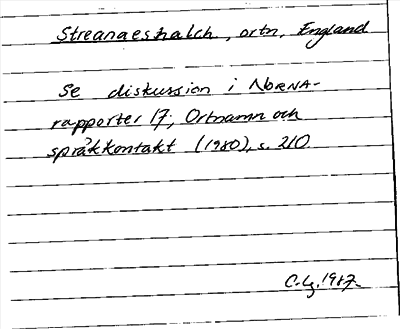 Streanaeshalch, ortn, England
Se diskussion i NORNA-
rapporter 17, Ortnamn och
språkkontakt (1980), s. 210.
C.Lg. 1987